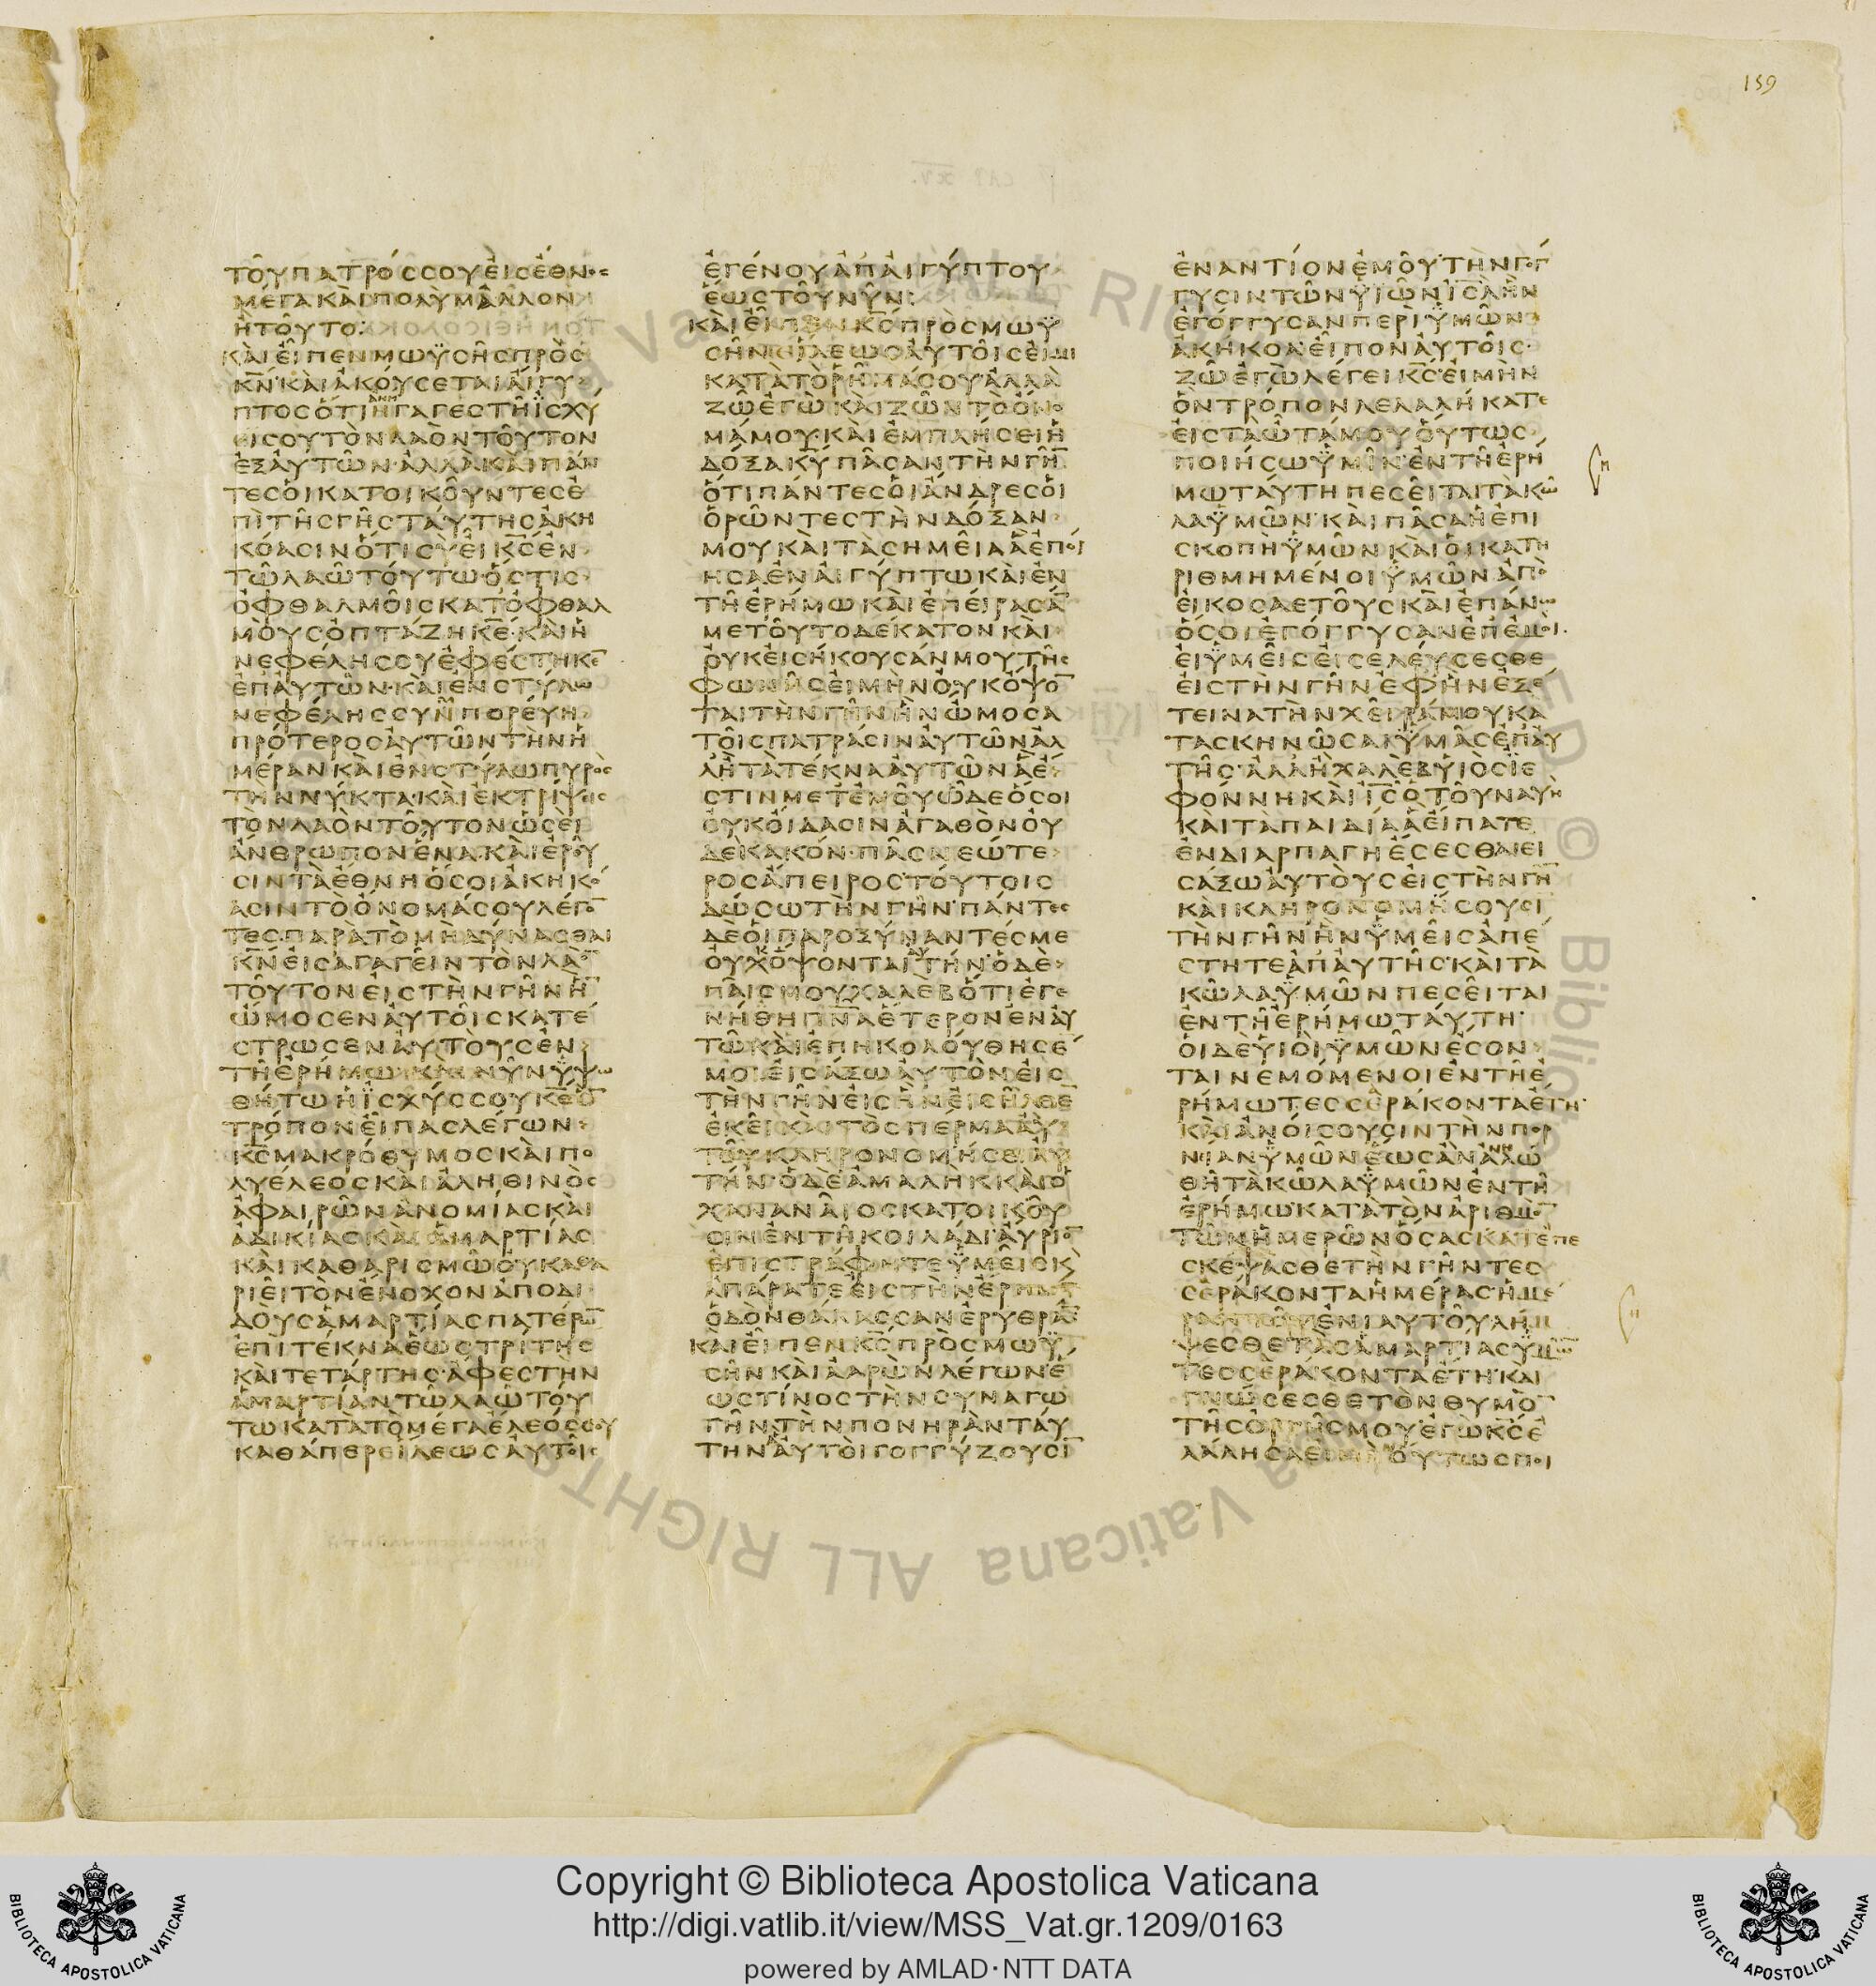 159
ΤΟΥΠΑΤΡΟССΟΥΕΙСΕΘΝΟС
ΜΕΓΑΚΑΙΠΟΛΥΜΑΛΛΟΝ
ΗΤΟΥΤΟ:
ΚΑΙΕΙΠΕΝΜΩΫСΗСΠΡΟС
Κ̅Ν̅ΚΑΙΑΚΟΥСΕΤΑΙΑΙΓΥ
ΠΤΟСΟΤΙΑΝΗΓΑΓΕСΤΗΙСΧΥ
ΕΙСΟΥΤΟΝΛΑΟΝΤΟΥΤΟΝ
ΕΞΑΥΤΩΝ·ΑΛΛΑΚΑΙΠΑΝ
ΤΕСΟΙΚΑΤΟΙΚΟΥΝΤΕСΕ
ΠΙΤΗСΓΗСΤΑΥΤΗСΑΚΗ
ΚΟΑСΙΝΟΤΙСΥΕΙΚ̅С̅ΕΝ
ΤΩΛΑΩΤΟΥΤΩ·ΟСΤΙС
ΟΦΘΑΛΜΟΙСΚΑΤΟΦΘΑΛ
ΜΟΥСΟΠΤΑΖΗΚ̅Ε̅·ΚΑΙΗ
ΝΕΦΕΛΗССΟΥΕΦΕСΤΗΚΕ̅
ΕΠΑΥΤΩΝ·ΚΑΙΕΝСΤΥΛΩ
ΝΕΦΕΛΗССΥΠΟΡΕΥΗ
ΠΡΟΤΕΡΟСΑΥΤΩΝΤΗΝΗ
ΜΕΡΑΝΚΑΙΕΝСΤΥΛΩΠΥΡΟС
ΤΗΝΝΥΚΤΑ·ΚΑΙΕΚΤΡΙΨΕΙС
ΤΟΝΛΑΟΝΤΟΥΤΟΝΩСΕΙ
ΑΝΘΡΩΠΟΝΕΝΑΚΑΙΕΡΟΥ
СΙΝΤΑΕΘΝΗΟСΟΙΑΚΗΚΟ
ΑСΙΝΤΟΟΝΟΜΑСΟΥΛΕΓΟ̅
ΤΕС·ΠΑΡΑΤΟΜΗΔΥΝΑСΘΑΙ
Κ̅Ν̅ΕΙСΑΓΑΓΕΙΝΤΟΝΛΑΟ̅
ΤΟΥΤΟΝΕΙСΤΗΝΓΗΝΗ̅
ΩΜΟСΕΝΑΥΤΟΙСΚΑΤΕ
СΤΡΩСΕΝΑΥΤΟΥСΕΝ
ΤΗΕΡΗΜΩ·ΚΑΙΝΥΝΫΨΩ
ΘΗΤΩΗΪСΧΥССΟΥΚ̅Ε̅Ο̅
ΤΡΟΠΟΝΕΙΠΑСΛΕΓΩΝ
Κ̅С̅ΜΑΚΡΟΘΥΜΟСΚΑΙΠΟ
ΛΥΕΛΕΟСΚΑΙΑΛΗΘΙΝΟС
ΑΦΑΙΡΩΝΑΝΟΜΙΑСΚΑΙ
ΑΔΙΚΙΑСΚΑΙΑΜΑΡΤΙΑС
ΚΑΙΚΑΘΑΡΙСΜΩΟΥΚΑΘΑ
ΡΙΕΙΤΟΝΕΝΟΧΟΝΑΠΟΔΙ
ΔΟΥСΑΜΑΡΤΙΑСΠΑΤΕΡΩ̅
ΕΠΙΤΕΚΝΑΕΩСΤΡΙΤΗС
ΚΑΙΤΕΤΑΡΤΗС·ΑΦΕСΤΗΝ
ΑΜΑΡΤΙΑΝΤΩΛΑΩΤΟΥ
ΤΩΚΑΤΑΤΟΜΕΓΑΕΛΕΟССΟΥ
ΚΑΘΑΠΕΡΕΙΛΕΩСΑΥΤΟΙС
ΕΓΕΝΟΥΑΠΑΙΓΥΠΤΟΥ
ΕΩСΤΟΥΝΥΝ:
ΚΑΙΕΙΠΕΝΚ̅С̅ΠΡΟСΜΩΫ
СΗΝΕΙΛΕΩСΑΥΤΟΙСΕΙΜΙ
ΚΑΤΑΤΟΡΗΜΑСΟΥΑΛΛΑ
ΖΩΕΓΩΚΑΙΖΩΝΤΟΟΝΟ
ΜΑΜΟΥ·ΚΑΙΕΜΠΛΗСΕΙΗ
ΔΟΞΑΚ̅Υ̅ΠΑСΑΝΤΗΝΓΗ̅
ΟΤΙΠΑΝΤΕСΟΙΑΝΔΡΕСΟΙ
ΟΡΩΝΤΕСΤΗΝΔΟΞΑΝ
ΜΟΥΚΑΙΤΑСΗΜΕΙΑΑΕΠΟΙ
ΗСΑΕΝΑΙΓΥΠΤΩΚΑΙΕΝ
ΤΗΕΡΗΜΩΚΑΙΕΠΕΙΡΑСΑ̅
ΜΕΤΟΥΤΟΔΕΚΑΤΟΝΚΑΙ
ΟΥΚΕΙСΗΚΟΥСΑΝΜΟΥΤΗС
ΦΩΝΗСΕΙΜΗΝΟΥΚΟΨΟ̅
ΤΑΙΤΗΝΓΗΝΗΝΩΜΟСΑ
ΤΟΙСΠΑΤΡΑСΙΝΑΥΤΩΝΑΛ
ΛΗΤΑΤΕΚΝΑΑΥΤΩΝΑΕ
СΤΙΝΜΕΤΕΜΟΥΩΔΕΟСΟΙ
ΟΥΚΟΙΔΑСΙΝΑΓΑΘΟΝΟΥ
ΔΕΚΑΚΟΝ·ΠΑСΝΕΩΤΕ
ΡΟСΑΠΕΙΡΟСΤΟΥΤΟΙС
ΔΩСΩΤΗΝΓΗΝ·ΠΑΝΤΕС
ΔΕΟΙΠΑΡΟΞΥΝΑΝΤΕСΜΕ
ΟΥΚΟΨΟΝΤΑΙΑΥΤΗΝ·ΟΔΕ
ΠΑΙСΜΟΥΧΑΛΕΒΟΤΙΕΓΕ
ΝΗΘΗΠ̅Ν̅Α̅ΕΤΕΡΟΝΕΝΑΥ
ΤΩΚΑΙΕΠΗΚΟΛΟΥΘΗСΕ
ΜΟΙΕΙСΑΞΩΑΥΤΟΝΕΙС
ΤΗΝΓΗΝΕΙСΗΝΕΙСΗΛΘΕ
ΕΚΕΙΚΑΙΤΟСΠΕΡΜΑΑΥ
ΤΟΥΚΛΗΡΟΝΟΜΗСΕΙΑΥ
ΤΗΝ·ΟΔΕΑΜΑΛΗΚΚΑΙΟ
ΧΑΝΑΝΑΙΟСΚΑΤΟΙΚΟΥ
СΙΝΕΝΤΗΚΟΙΛΑΔΙ·ΑΥΡΙΟ̅
ΕΠΙСΤΡΑΦΗΤΕΫΜΕΙСΚ
ΑΠΑΡΑΤΕΕΙСΤΗΝΕΡΗΜΟ̅
ΟΔΟΝΘΑΛΑССΑΝΕΡΥΘΡΑ̅
ΚΑΙΕΙΠΕΝΚ̅С̅ΠΡΟСΜΩΫ
СΗΝΚΑΙΑΑΡΩΝΛΕΓΩΝΕ
ΩСΤΙΝΟСΤΗΝСΥΝΑΓΩ
ΓΗΝΤΗΝΠΟΝΗΡΑΝΤΑΥ
ΤΗΝΑΑΥΤΟΙΓΟΓΓΥΖΟΥСΙ̅
ΕΝΑΝΤΙΟΝΕΜΟΥΤΗΝΓΟΓ
ΓΥСΙΝΤΩΝΫΙΩΝΙ̅С̅Λ̅ΗΝ
ΕΓΟΓΓΥСΑΝΠΕΡΙΫΜΩΝ
ΑΚΗΚΟΑ·ΕΙΠΟΝΑΥΤΟΙС·
ΖΩΕΓΩΛΕΓΕΙΚ̅С̅ΕΙΜΗΝ
ΟΝΤΡΟΠΟΝΛΕΛΑΛΗΚΑΤΕ
ΕΙСΤΑΩΤΑΜΟΥΟΥΤΩС
ΠΟΙΗСΩΫΜΙΝ·ΕΝΤΗΕΡΗ
ΜΩΤΑΥΤΗΠΕСΕΙΤΑΙΤΑΚΩ
ΛΑΫΜΩΝ·ΚΑΙΠΑСΑΗΕΠΙ
СΚΟΠΗΫΜΩΝΚΑΙΟΙΚΑΤΗ
ΡΙΘΜΗΜΕΝΟΙΫΜΩΝΑΠΟ
ΕΙΚΟСΑΕΤΟΥСΚΑΙΕΠΑΝΩ
ΟСΟΙΕΓΟΓΓΥСΑΝΕΠΕΜΟΙ·
ΕΙΫΜΕΙСΕΙСΕΛΕΥСΕСΘΕ
ΕΙСΤΗΝΓΗΝΕΦΗΝΕΞΕ
ΤΕΙΝΑΤΗΝΧΕΙΡΑΜΟΥΚΑ
ΤΑСΚΗΝΩСΑΙΫΜΑСΕΠΑΥ
ΤΗС·ΑΛΛΗΧΑΛΕΒΥΙΟСΪΕ
ΦΟΝΝΗΚΑΙΙ̅С̅ΟΤΟΥΝΑΥΗ
ΚΑΙΤΑΠΑΙΔΙΑΑΕΙΠΑΤΕ
ΕΝΔΙΑΡΠΑΓΗΕСΕСΘΑΙΕΙ
СΑΞΩΑΥΤΟΥСΕΙСΤΗΝΓΗ̅
ΚΑΙΚΛΗΡΟΝΟΜΗСΟΥСΙ
ΤΗΝΓΗΝΗΝΫΜΕΙСΑΠΕ
СΤΗΤΕΑΠΑΥΤΗС·ΚΑΙΤΑ
ΚΩΛΑΫΜΩΝΠΕСΕΙΤΑΙ
ΕΝΤΗΕΡΗΜΩΤΑΥΤΗ·
ΟΙΔΕΥΙΟΙΫΜΩΝΕСΟΝ
ΤΑΙΝΕΜΟΜΕΝΟΙΕΝΤΗΕ
ΡΗΜΩΤΕССΕΡΑΚΟΝΤΑΕΤΗ·
ΚΑΙΑΝΟΙСΟΥСΙΝΤΗΝΠΟΡ
ΝΙΑΝΫΜΩΝΕΩСΑΝΑΝΑΛΩ
ΘΗΤΑΚΩΛΑΫΜΩΝΕΝΤΗ
ΕΡΗΜΩ·ΚΑΤΑΤΟΝΑΡΙΘΜΟ̅
ΤΩΝΗΜΕΡΩΝΟСΑСΚΑΤΕΠΕ
СΚΕΨΑСΘΕΤΗΝΓΗΝΤΕС
СΕΡΑΚΟΝΤΑΗΜΕΡΑС·ΗΜΕ
ΡΑΝΤΟΥΕΝΙΑΥΤΟΥΛΗΜ
ΨΕСΘΕΤΑСΑΜΑΡΤΙΑСΫΜΩ̅
ΤΕССΕΡΑΚΟΝΤΑΕΤΗ·ΚΑΙ
ΓΝΩСΕСΘΕΤΟΝΘΥΜΟ̅
ΤΗСΟΡΓΗСΜΟΥ·ΕΓΩΚ̅С̅Ε
ΛΑΛΗСΑΕΙΜΗΝΟΥΤΩСΠΟΙ
Copyright © Biblioteca Apostolica Vaticana
http://digi.vatlib.it/view/MSS_Vat.gr.1209/0163
powered by AMLAD·NTT DATA
BIBLIOTECA APOSTOLICA VATICANA
BIBLIOTECA APOSTOLICA VATICANA